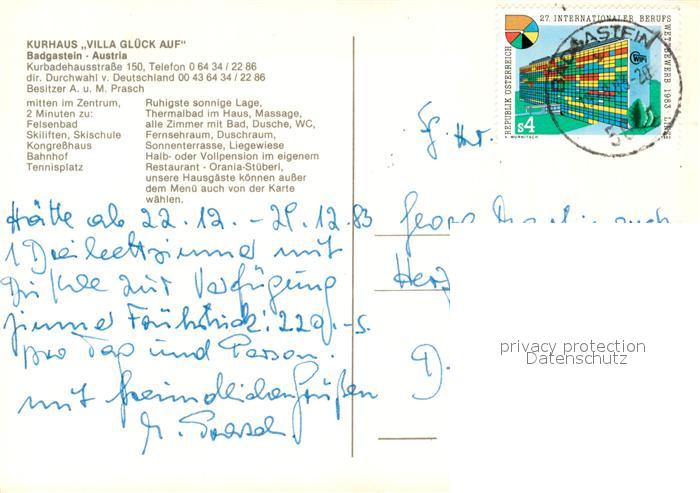 KURHAUS „VILLA GLÜCK AUF"
Badgastein - Austria
Kurbadehausstraße 150, Telefon 0 64 34 / 22 86
dir. Durchwahl v. Deutschland 00 43 64 34 / 22 86
Besitzer A. u. M. Prasch
mitten im Zentrum,
2 Minuten zu:
Felsenbad
Skiliften, Skischule
Kongreßhaus
Bahnhof
Tennisplatz
Ruhigste sonnige Lage,
Thermalbad im Haus, Massage,
alle Zimmer mit Bad, Dusche, WC,
Fernsehraum, Duschraum,
Sonnenterrasse, Liegewiese
Halb- oder Vollpension im eigenem
Restaurant - Orania-Stüberl,
unsere Hausgäste können außer
dem Menü auch von der Karte
wählen.
Hätte ab 22.12. - 29.12.83
1 Dreibettzimmer mit
Dusche zur Verfügung
Zimmer Frühstück: 220.-S.
pro Tag und Person.
mit freundlichen Grüßen
M. Prasch
27. INTERNATIONALER BERUFS
WETTBEWERB 1983 LINZ
REPUBLIK ÖSTERREICH
S4
WIFI
BADGASTEIN
Georg
Herz
privacy protection
Datenschutz